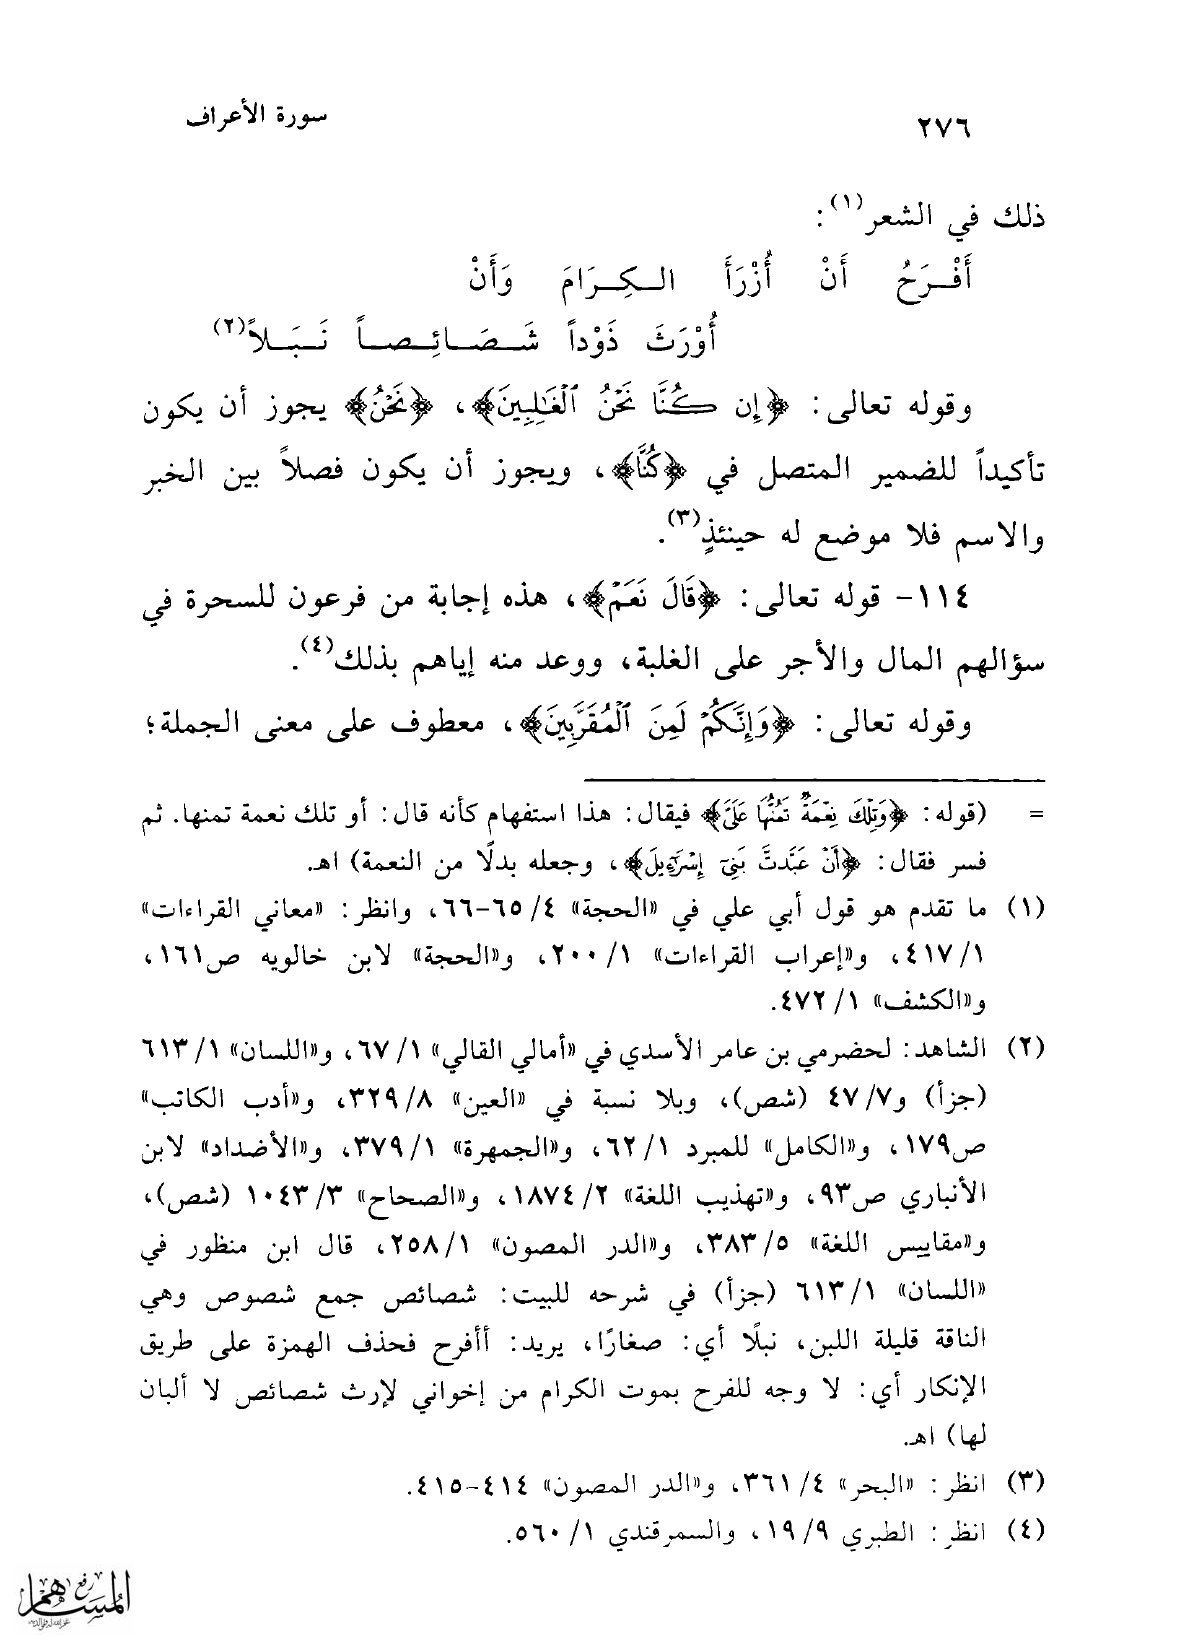 ٢٧٦
سورة الأعراف
ذلك في الشعر(١):
أَفْـرَحُ أَنْ أُزْرَأَ الـكِـرَامَ وَأَنْ
أُوْرَثَ ذَوْداً شَـصَـائِـصـاً نَـبَـلاً(٢)
وقوله تعالى: ﴿إِن كُنَّا نَحْنُ ٱلْغَٰلِبِينَ﴾، ﴿نَحْنُ﴾ يجوز أن يكون
تأكيداً للضمير المتصل في ﴿كُنَّا﴾، ويجوز أن يكون فصلاً بين الخبر
والاسم فلا موضع له حينئذٍ(٣).
١١٤- قوله تعالى: ﴿قَالَ نَعَمْ﴾، هذه إجابة من فرعون للسحرة في
سؤالهم المال والأجر على الغلبة، ووعد منه إياهم بذلك(٤).
وقوله تعالى: ﴿وَإِنَّكُمْ لَمِنَ ٱلْمُقَرَّبِينَ﴾، معطوف على معنى الجملة؛
= (قوله: ﴿وَتِلْكَ نِعْمَةٌ تَمُنُّهَا عَلَيَّ﴾ فيقال: هذا استفهام كأنه قال: أو تلك نعمة تمنها. ثم
فسر فقال: ﴿أَنْ عَبَّدتَّ بَنِيٓ إِسْرَٰٓءِيلَ﴾، وجعله بدلًا من النعمة) اهـ.
(١) ما تقدم هو قول أبي علي في «الحجة» ٤/ ٦٥-٦٦، وانظر: «معاني القراءات»
١/ ٤١٧، و«إعراب القراءات» ١/ ٢٠٠، و«الحجة» لابن خالويه ص١٦١،
و«الكشف» ١/ ٤٧٢.
(٢) الشاهد: لحضرمي بن عامر الأسدي في «أمالي القالي» ١/ ٦٧، و«اللسان» ١/ ٦١٣
(جزأ) و٧/ ٤٧ (شص)، وبلا نسبة في «العين» ٨/ ٣٢٩، و«أدب الكاتب»
ص١٧٩، و«الكامل» للمبرد ١/ ٦٢، و«الجمهرة» ١/ ٣٧٩، و«الأضداد» لابن
الأنباري ص٩٣، و«تهذيب اللغة» ٢/ ١٨٧٤، و«الصحاح» ٣/ ١٠٤٣ (شص)،
و«مقاييس اللغة» ٥/ ٣٨٣، و«الدر المصون» ١/ ٢٥٨، قال ابن منظور في
«اللسان» ١/ ٦١٣ (جزأ) في شرحه للبيت: شصائص جمع شصوص وهي
الناقة قليلة اللبن، نبلًا أي: صغارًا، يريد: أأفرح فحذف الهمزة على طريق
الإنكار أي: لا وجه للفرح بموت الكرام من إخواني لإرث شصائص لا ألبان
لها) اهـ.
(٣) انظر: «البحر» ٤/ ٣٦١، و«الدر المصون» ٤١٤-٤١٥.
(٤) انظر: الطبري ٩/ ١٩، والسمرقندي ١/ ٥٦٠.